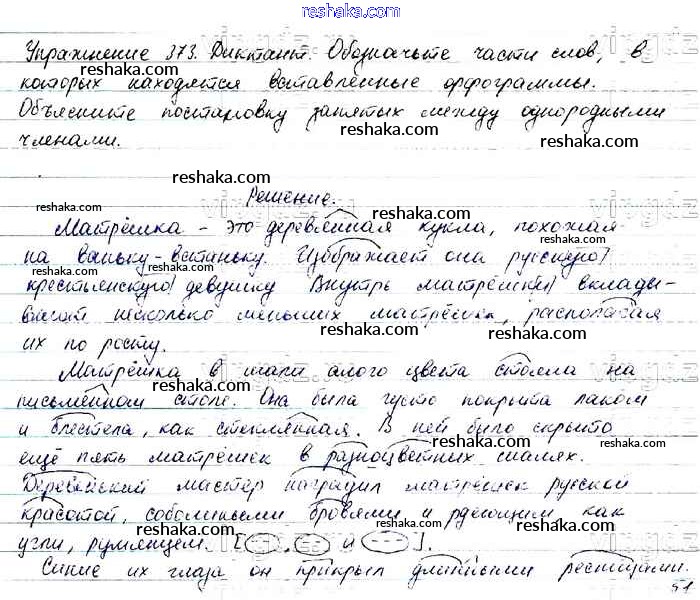 reshaka.com
Упражнение 373. Диктант. Обозначьте части слов, в
которых находятся вставленные орфограммы.
Объясните постановку запятых между однородными
членами.
Решение.
Матрёшка - это деревянная кукла, похожая
на ваньку-встаньку. Изображает она русскую
крестьянскую девушку Внутрь матрёшки вклады-
вают несколько меньших матрёшек, располагая
их по росту.
Матрёшка в шали алого цвета стояла на
письменном столе. Она была густо покрыта лаком
и блестела, как стеклянная. В ней было скрыто
ещё пять матрёшек в разноцветных шалях.
Деревенский мастер наградил матрёшек русской
красотой, соболиными бровями и рдеющим как
угли, румянцем. [ , и ].
Синие их глаза он прикрыл длинными ресницами.
51